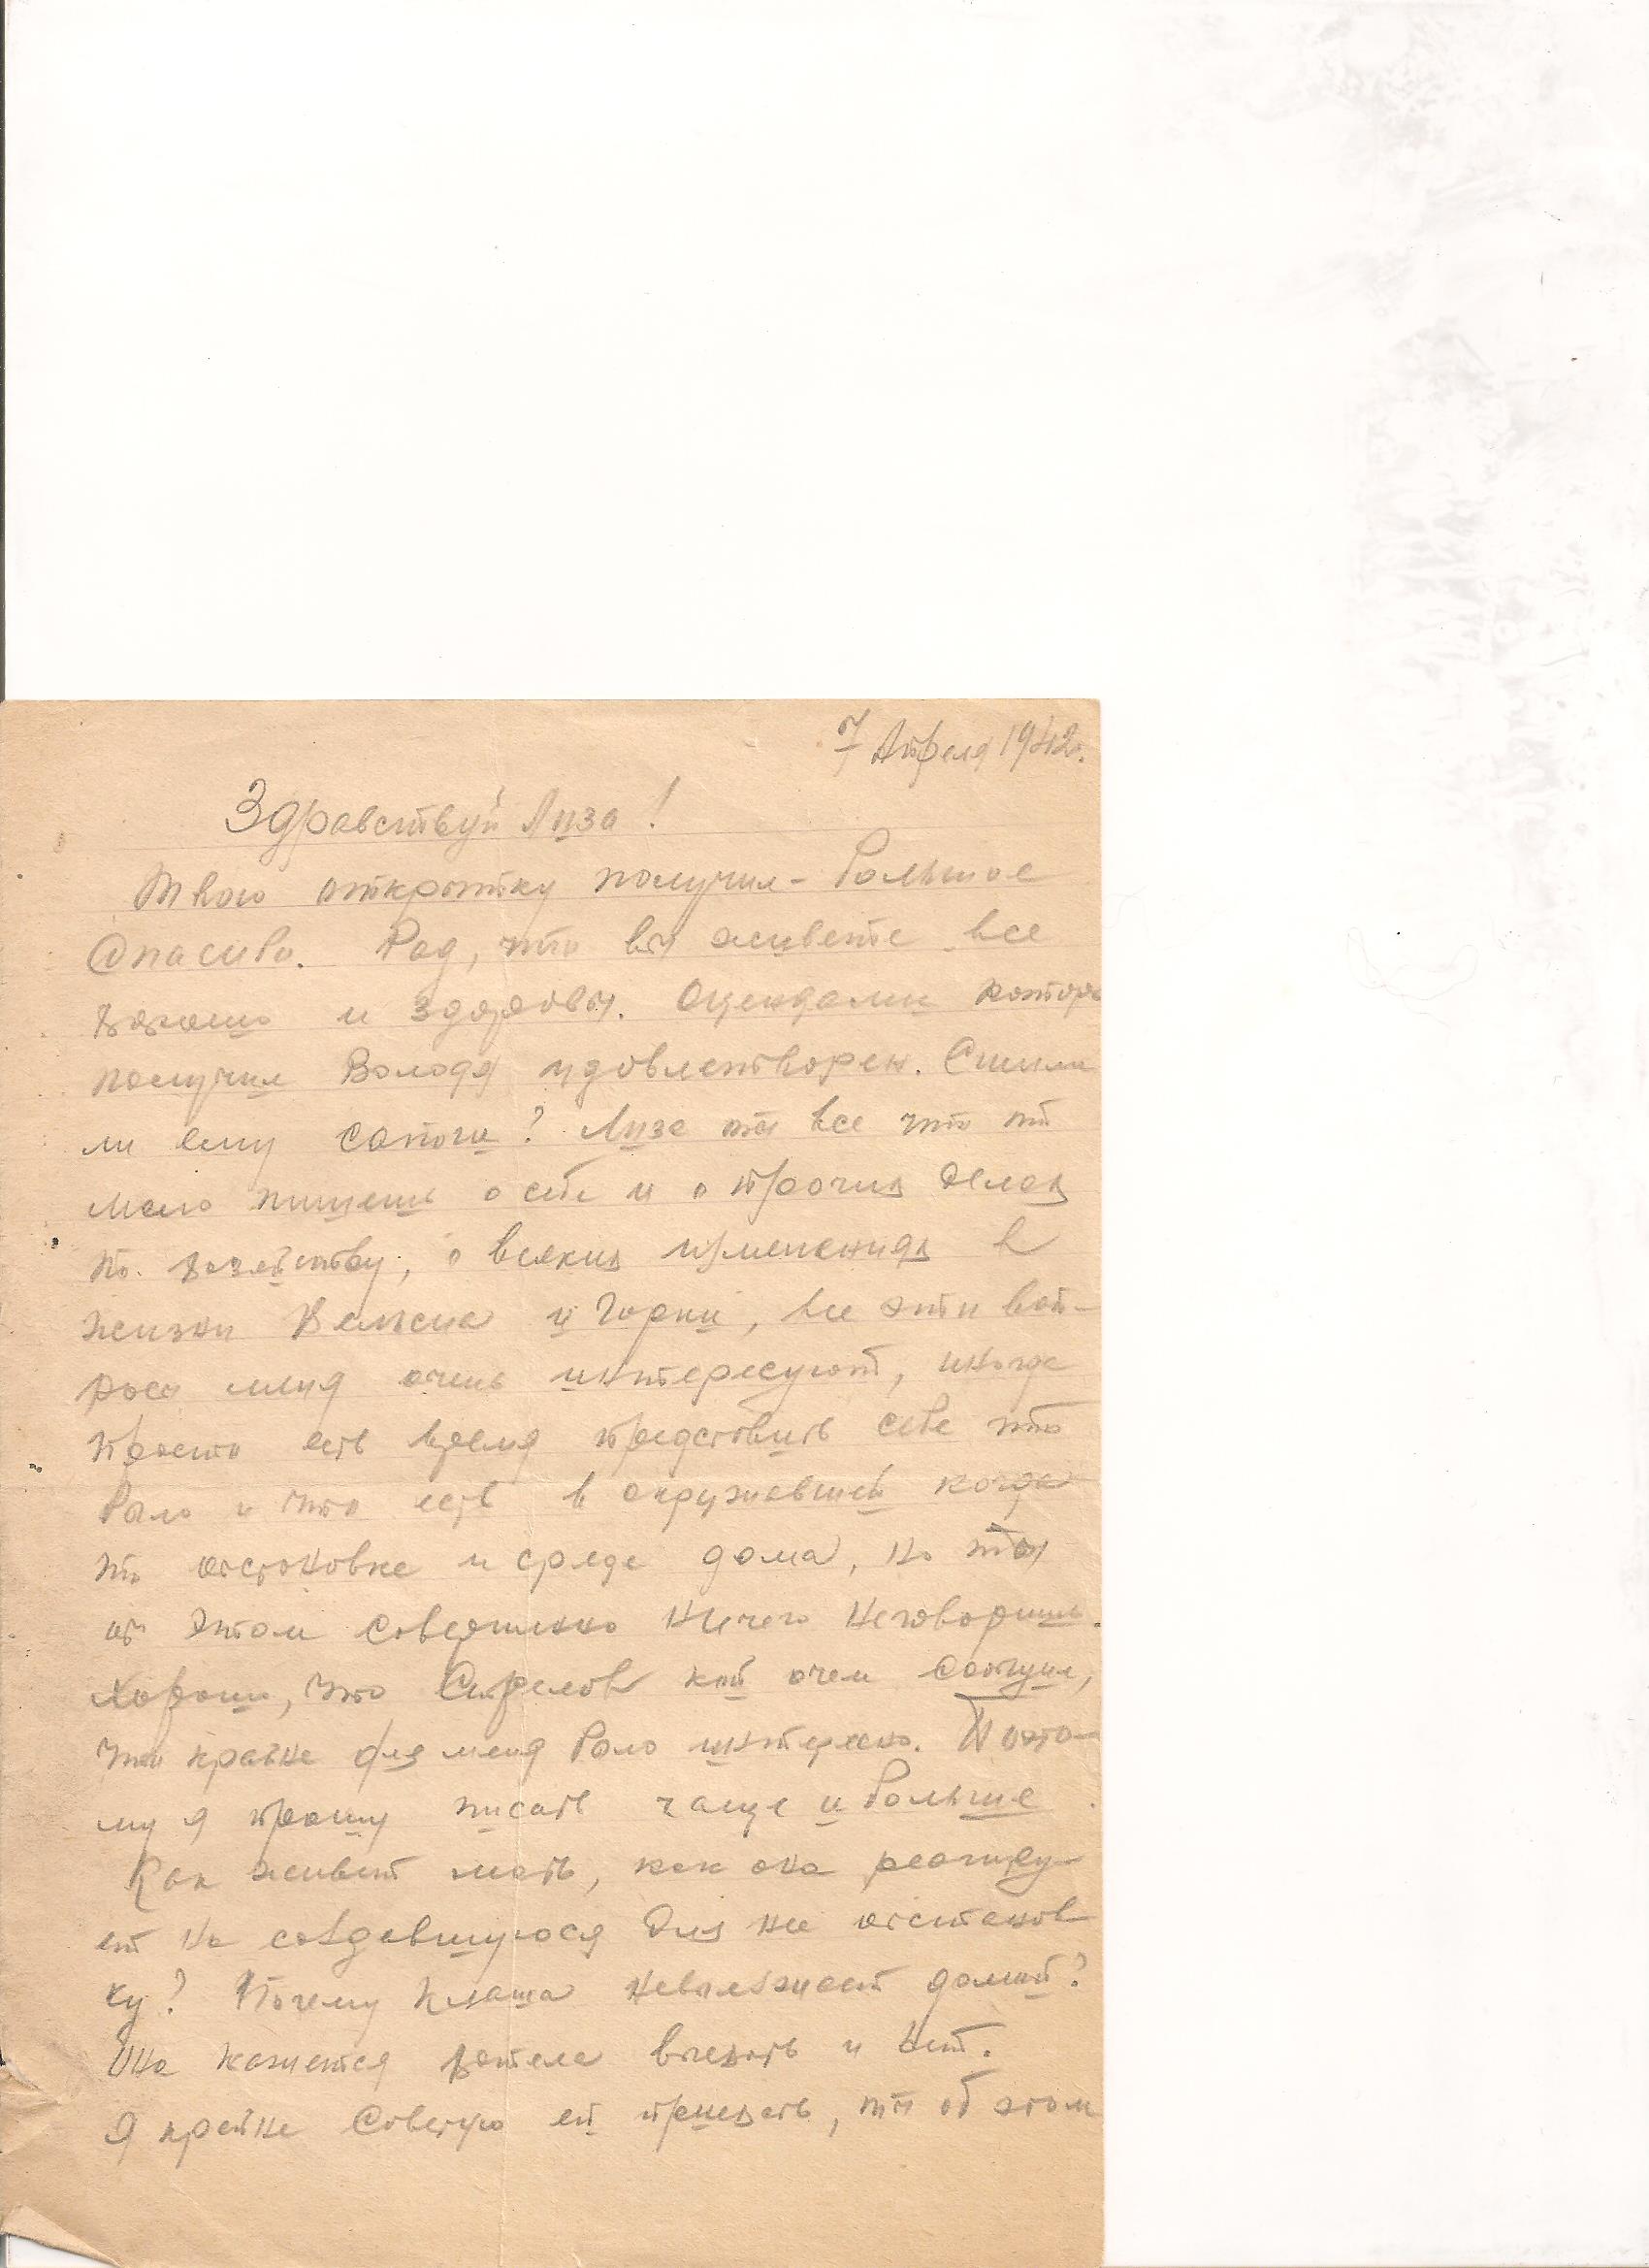 7 Апреля 1942.
Здравствуй Лиза!
Твою открытку получил - большое
Спасибо. Рад, что вы живете все
хорошо и здоровы. Оценками котор
получил Володя удовлетворен. Сшили
ли ему сапоги? Лизе ты все что то
мало пишешь о себе и о прочих делах
по хозяйству, о всяких изменениях в
жизни Вельска и Горки, все эти воп-
росы меня очень интересуют, иногда
просто есть время представить себе что
было и что есть в окружавшей когда
то обстановке и среде дома, но ты
об этом совершенно ничего неговоришь.
Хорошо, что Стрелов кой о чем сообщил,
это крайне для меня было интересно. Поэто-
му я прошу писать чаще и больше.
Как живет мать, как она реагиру-
ет на создавшуюся для нее обстанов
ку? Почему Клаша невыезжает домой?
Она кажется хотела выехать и нет.
Я крайне советую ей приехать, ты об этом